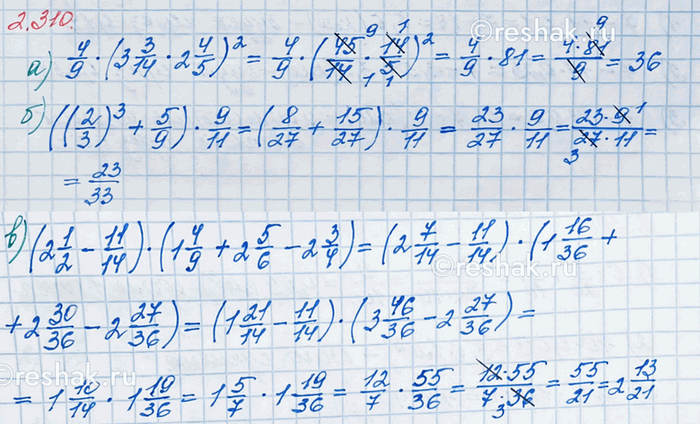 2.310.
а) 4/9 · (3 3/14 · 2 4/5)² = 4/9 · (45/14 · 14/5)² = 4/9 · 81 = 4·81/9 = 36
б) ((2/3)³ + 5/9) · 9/11 = (8/27 + 15/27) · 9/11 = 23/27 · 9/11 = 23·9/27·11 =
= 23/33
в) (2 1/2 − 11/14) · (1 4/9 + 2 5/6 − 2 3/4) = (2 7/14 − 11/14) · (1 16/36 +
+ 2 30/36 − 2 27/36) = (1 21/14 − 11/14) · (3 46/36 − 2 27/36) =
= 1 10/14 · 1 19/36 = 1 5/7 · 1 19/36 = 12/7 · 55/36 = 12·55/7·36 = 55/21 = 2 13/21
©reshak.ru
©reshak.ru
©reshak.ru
©reshak.ru